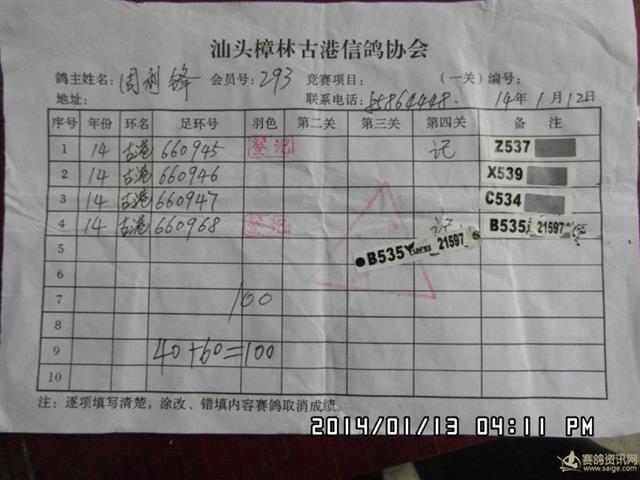 汕头樟林古港信鸽协会
鸽主姓名: 周利锋 会员号: 293 竞赛项目: (一关)编号:
地址: 联系电话: 85864448. 14年1月12日
序号 年份 环名 足环号 羽色 第二关 第三关 第四关 备注
1 14 古港 660945 登记 记 Z537
2 14 古港 660946 X539
3 14 古港 660947 C534
4 14 古港 660968 登记 记 B535 21597
5 B535 21597
6
7 100
8
9 40+60=100
10
注: 逐项填写清楚, 涂改、错填内容赛鸽取消成绩。
2014/01/13 04:11 PM
赛鸽资讯网
www.saige.com